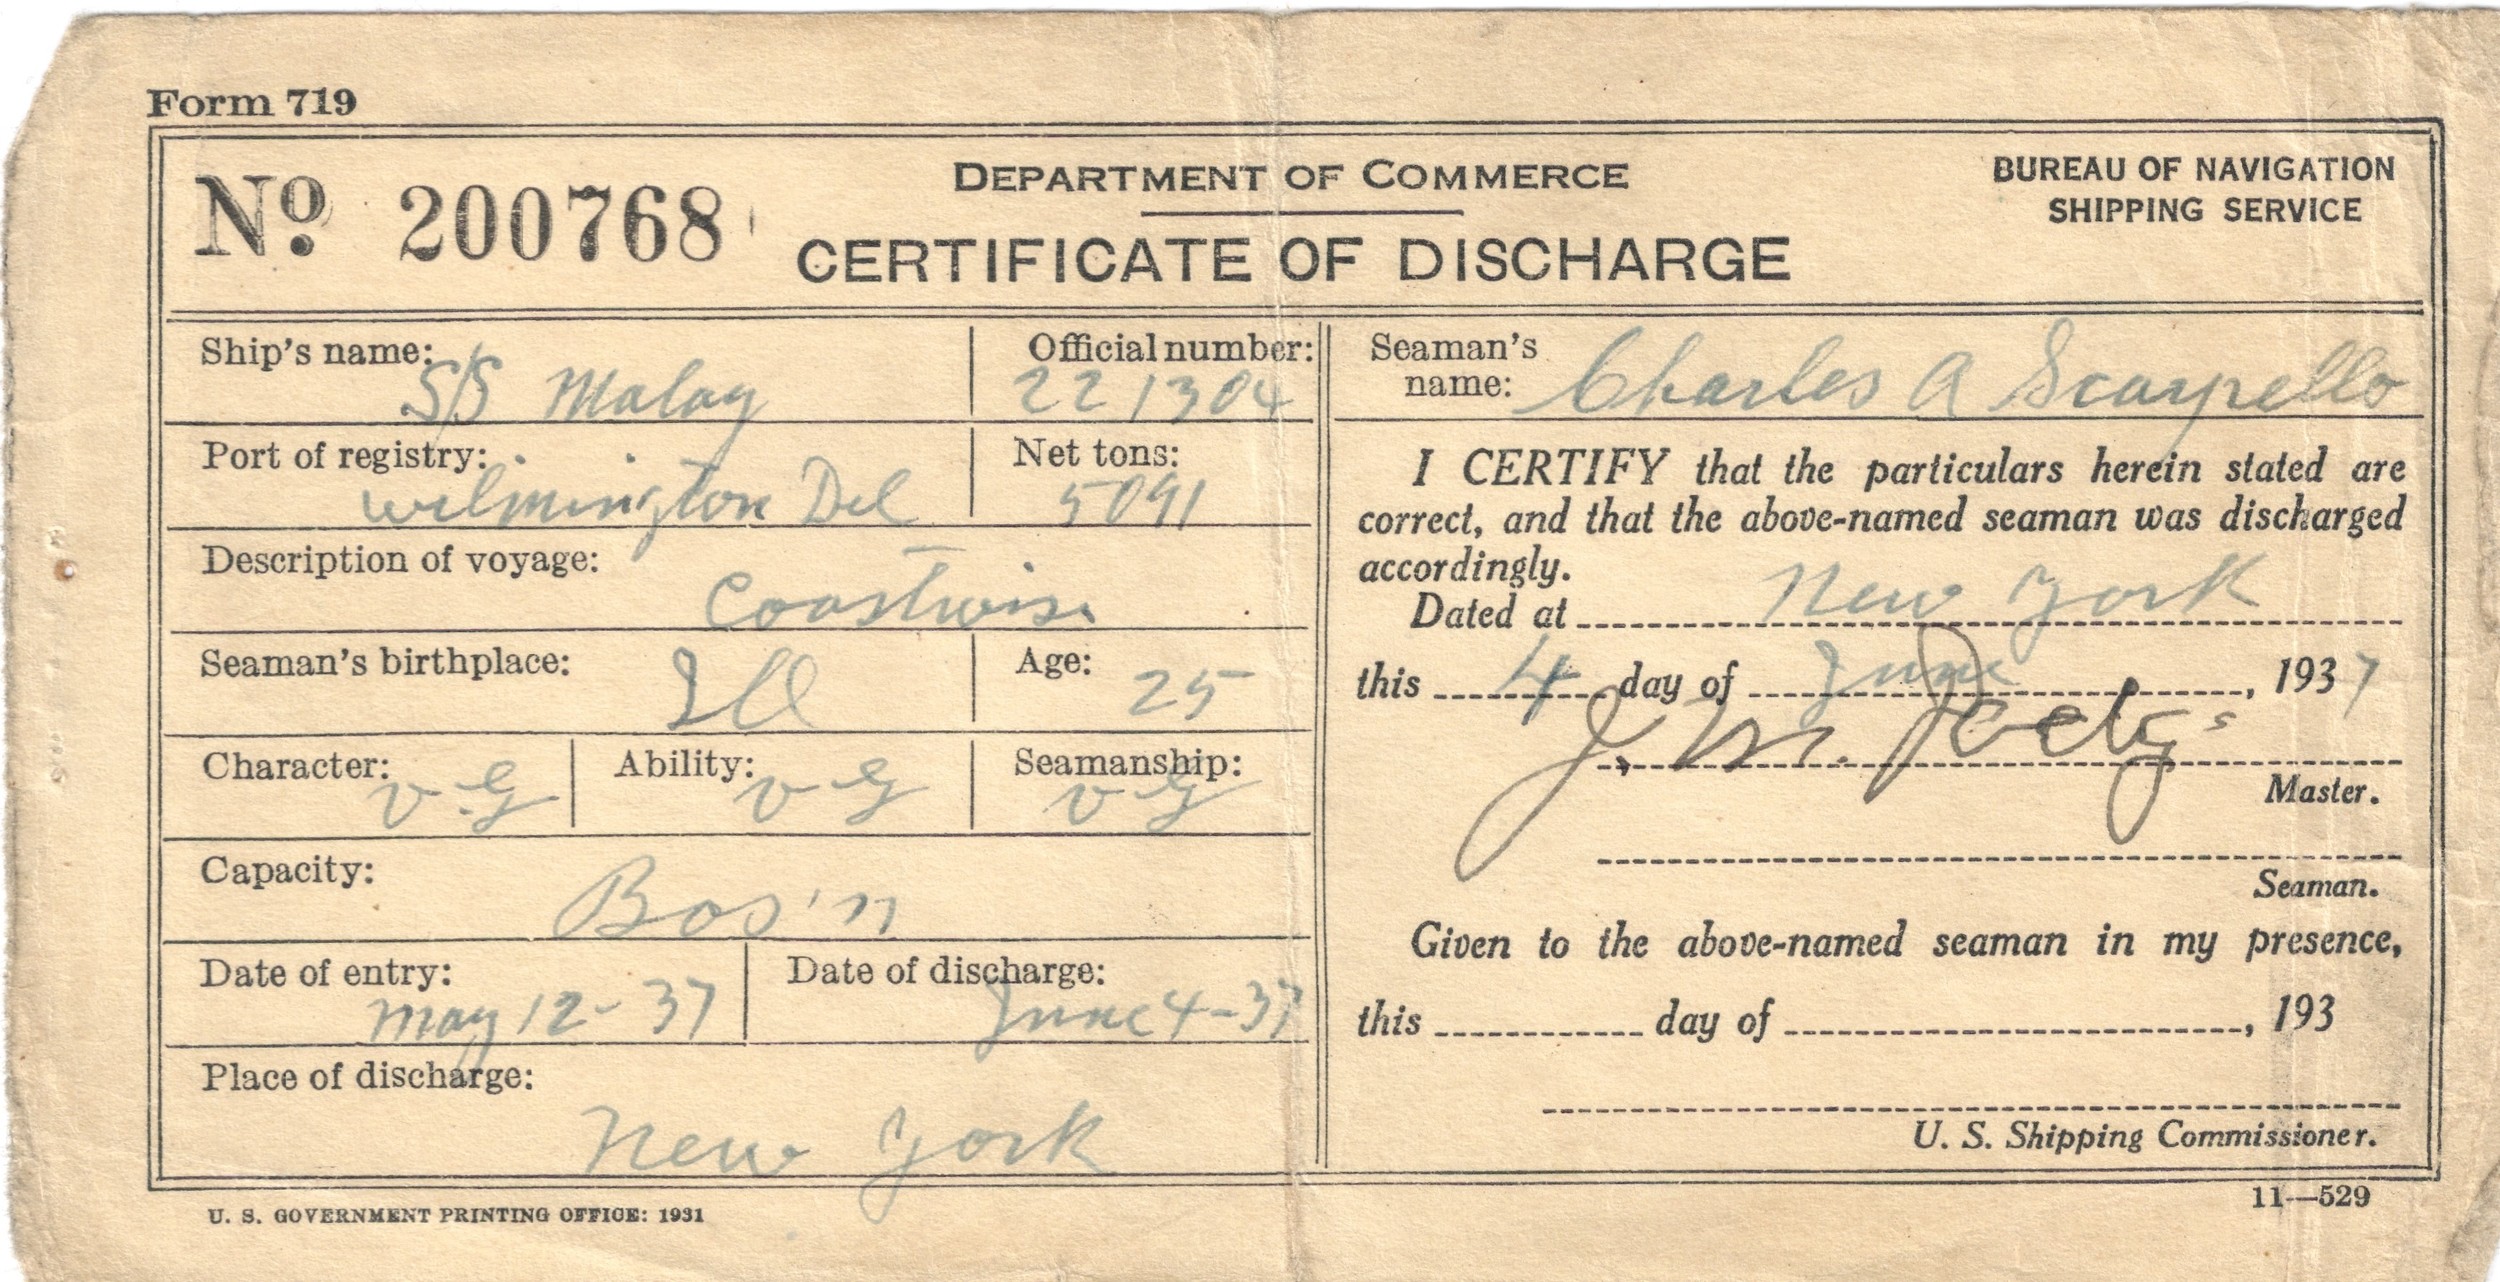 Form 719
No. 200768
DEPARTMENT OF COMMERCE
BUREAU OF NAVIGATION
SHIPPING SERVICE
CERTIFICATE OF DISCHARGE
Ship's name: S/S Malay
Official number: 221304
Port of registry: Wilmington Del
Net tons: 5091
Description of voyage: Coastwise
Seaman's birthplace: Ill
Age: 25
Character: V.G
Ability: V G
Seamanship: V G
Capacity: Bos'n
Date of entry: May 12-37
Date of discharge: June 4-37
Place of discharge: New York
Seaman's name: Charles A Scarpello
I CERTIFY that the particulars herein stated are
correct, and that the above-named seaman was discharged
accordingly.
Dated at New York
this 4 day of June, 1937
J. M.
Master.
Seaman.
Given to the above-named seaman in my presence,
this day of , 193
U. S. Shipping Commissioner.
U. S. GOVERNMENT PRINTING OFFICE: 1931
11—529